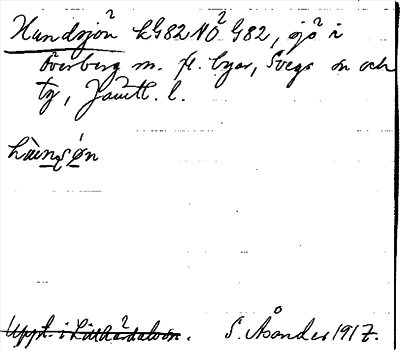 Hundsjön LG82 NÖ G82, sjö i
Överberg m. fl. byar, Svegs sn och
tg, Jämtl. l.
Uppt. i Lillhärdalsön. S. Åsander 1917.